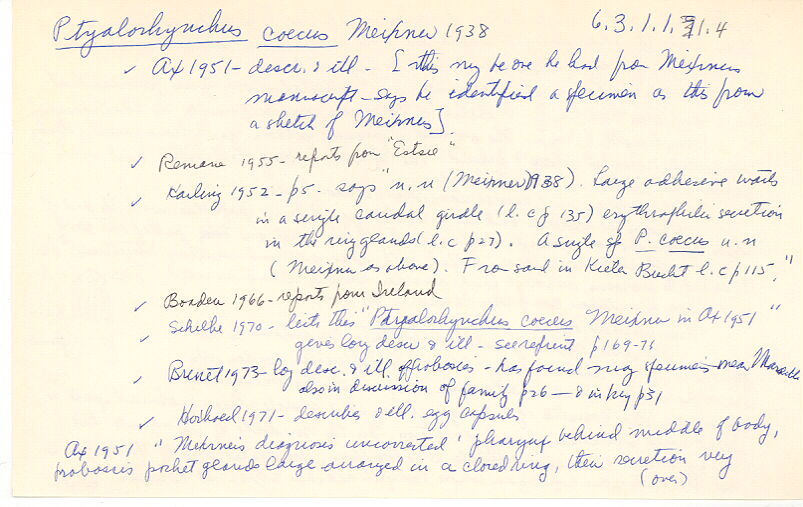 Ptyalorhynchus coecus Meixner 1938 6.3.1.1.1.4
✓ Ax 1951 - descr. & ill - [this may be one he had from Meixners
manuscript - says he identified a specimen as this from
a sketch of Meixners].
✓ Remane 1955 - reports from "Estsee"
✓ Karling 1952 - p5. says "n.n (Meixner 1938). Large adhesive warts
in a single caudal girdle (l.c p 135) erythrophilic secretion
in the ring glands (l.c p27). A single sp P. coecus n.n
(Meixner as above). From sand in Kieler Bucht l.c p115."
✓ Boaden 1966 - reports from Ireland
✓ Schilke 1970 - lists this "Ptyalorhynchus coecus Meixner in Ax 1951"
gives long descr & ill - see reprint p169-71
✓ Brunet 1973 - long desc. & ill. of proboscis - has found many specimens near Marseille
also in discussion of family p26 - & in key p31
✓ 1971 - describes & ill. egg capsules
Ax 1951 "Meixners diagnosis uncorrected" pharynx behind middle of body,
proboscis pocket glands large arranged in a closed ring, their secretion very
(over)